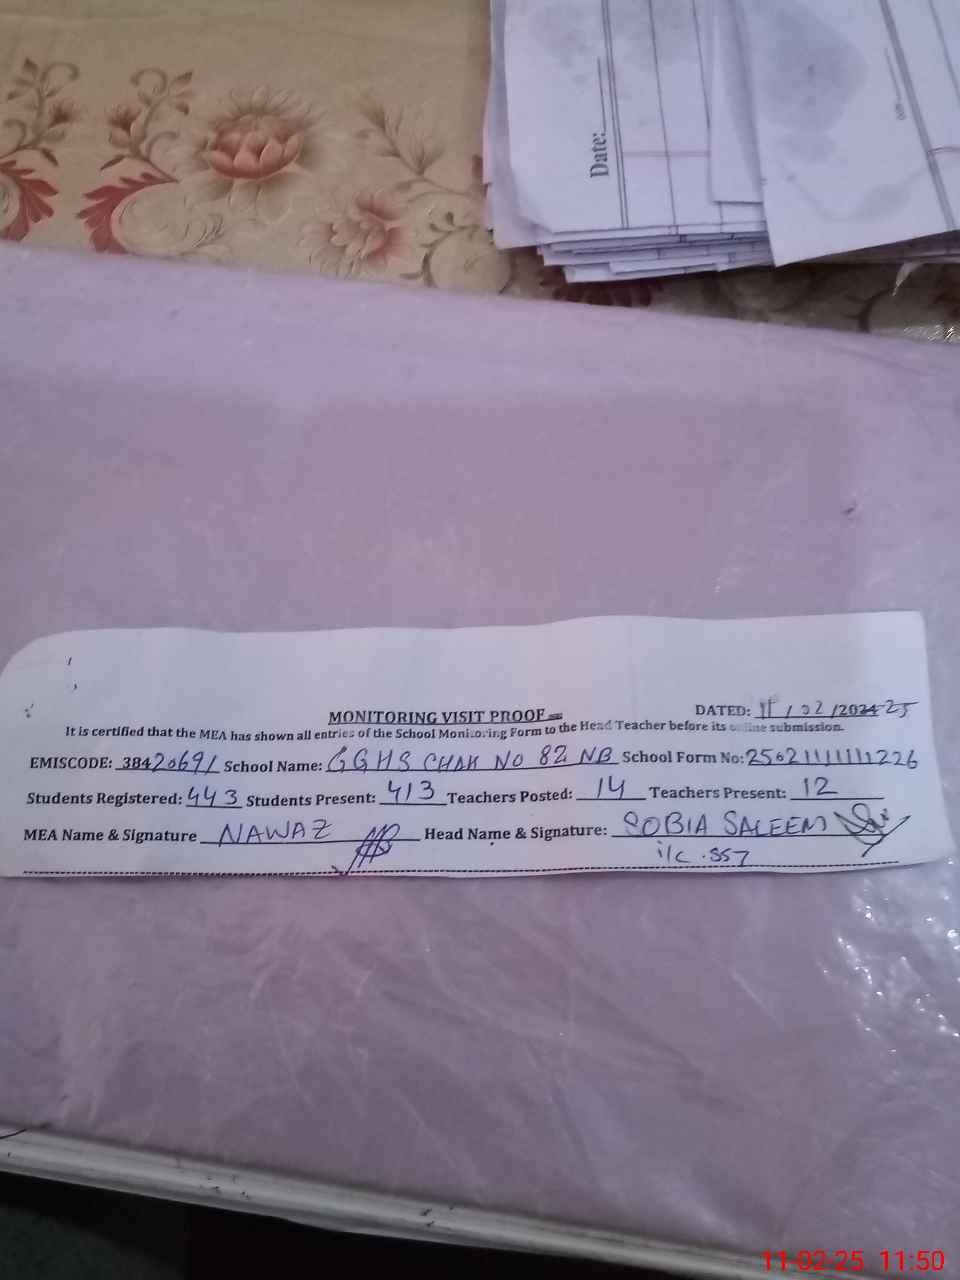 Date:
MONITORING VISIT PROOF
DATED: 11/02/202425
It is certified that the MEA has shown all entries of the School Monitoring Form to the Head Teacher before its online submission.
EMISCODE: 38420691 School Name: GGHS CHAK NO 82 NB School Form No:
Students Registered: 443 Students Present: 413 Teachers Posted: 14 Teachers Present: 12
MEA Name & Signature NAWAZ Head Name & Signature: SOBIA SALEEM
i/c .SST
11-02-25 11:50